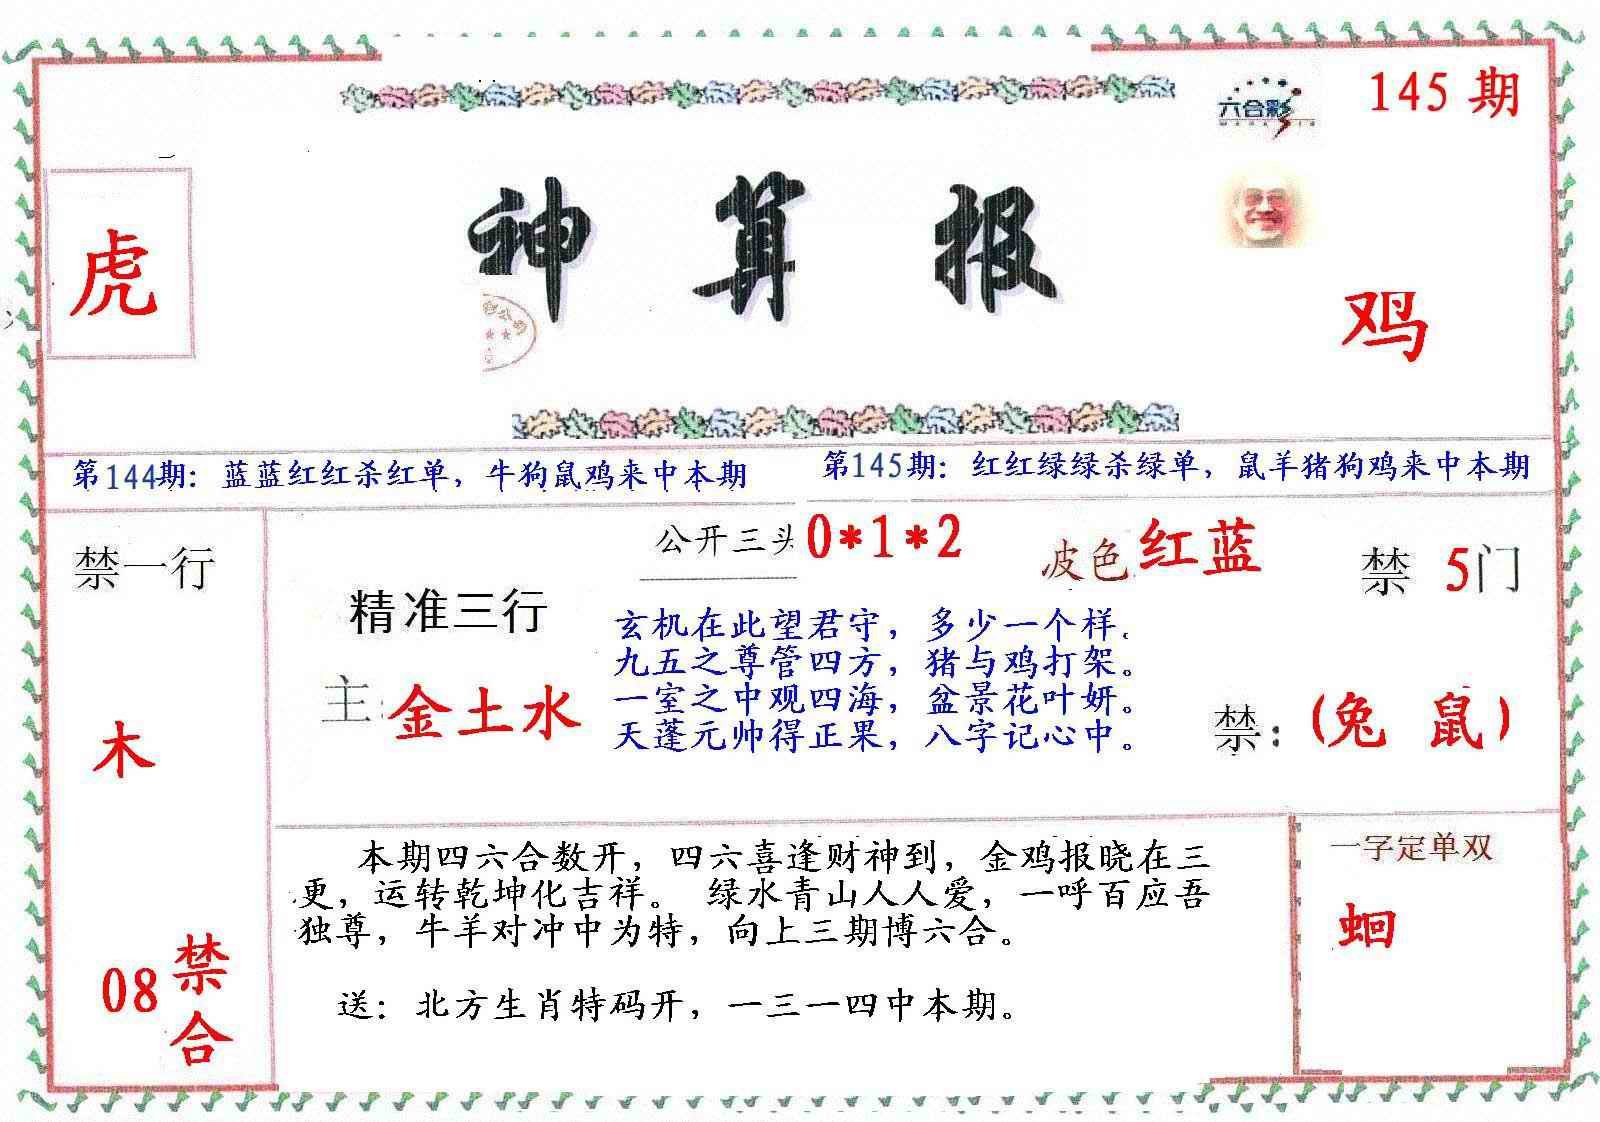 六合彩
145 期
虎
神算报
鸡
第144期：蓝蓝红红杀红单，牛狗鼠鸡来中本期
第145期：红红绿绿杀绿单，鼠羊猪狗鸡来中本期
禁一行
木
08 禁合
精准三行
主：金土水
公开三头 0*1*2
波色 红蓝
禁 5门
玄机在此望君守，多少一个样。
九五之尊管四方，猪与鸡打架。
一室之中观四海，盆景花叶妍。
天蓬元帅得正果，八字记心中。
禁：(兔 鼠)
本期四六合数开，四六喜逢财神到，金鸡报晓在三
更，运转乾坤化吉祥。 绿水青山人人爱，一呼百应吾
独尊，牛羊对冲中为特，向上三期博六合。
送：北方生肖特码开，一三一四中本期。
一字定单双
蛔